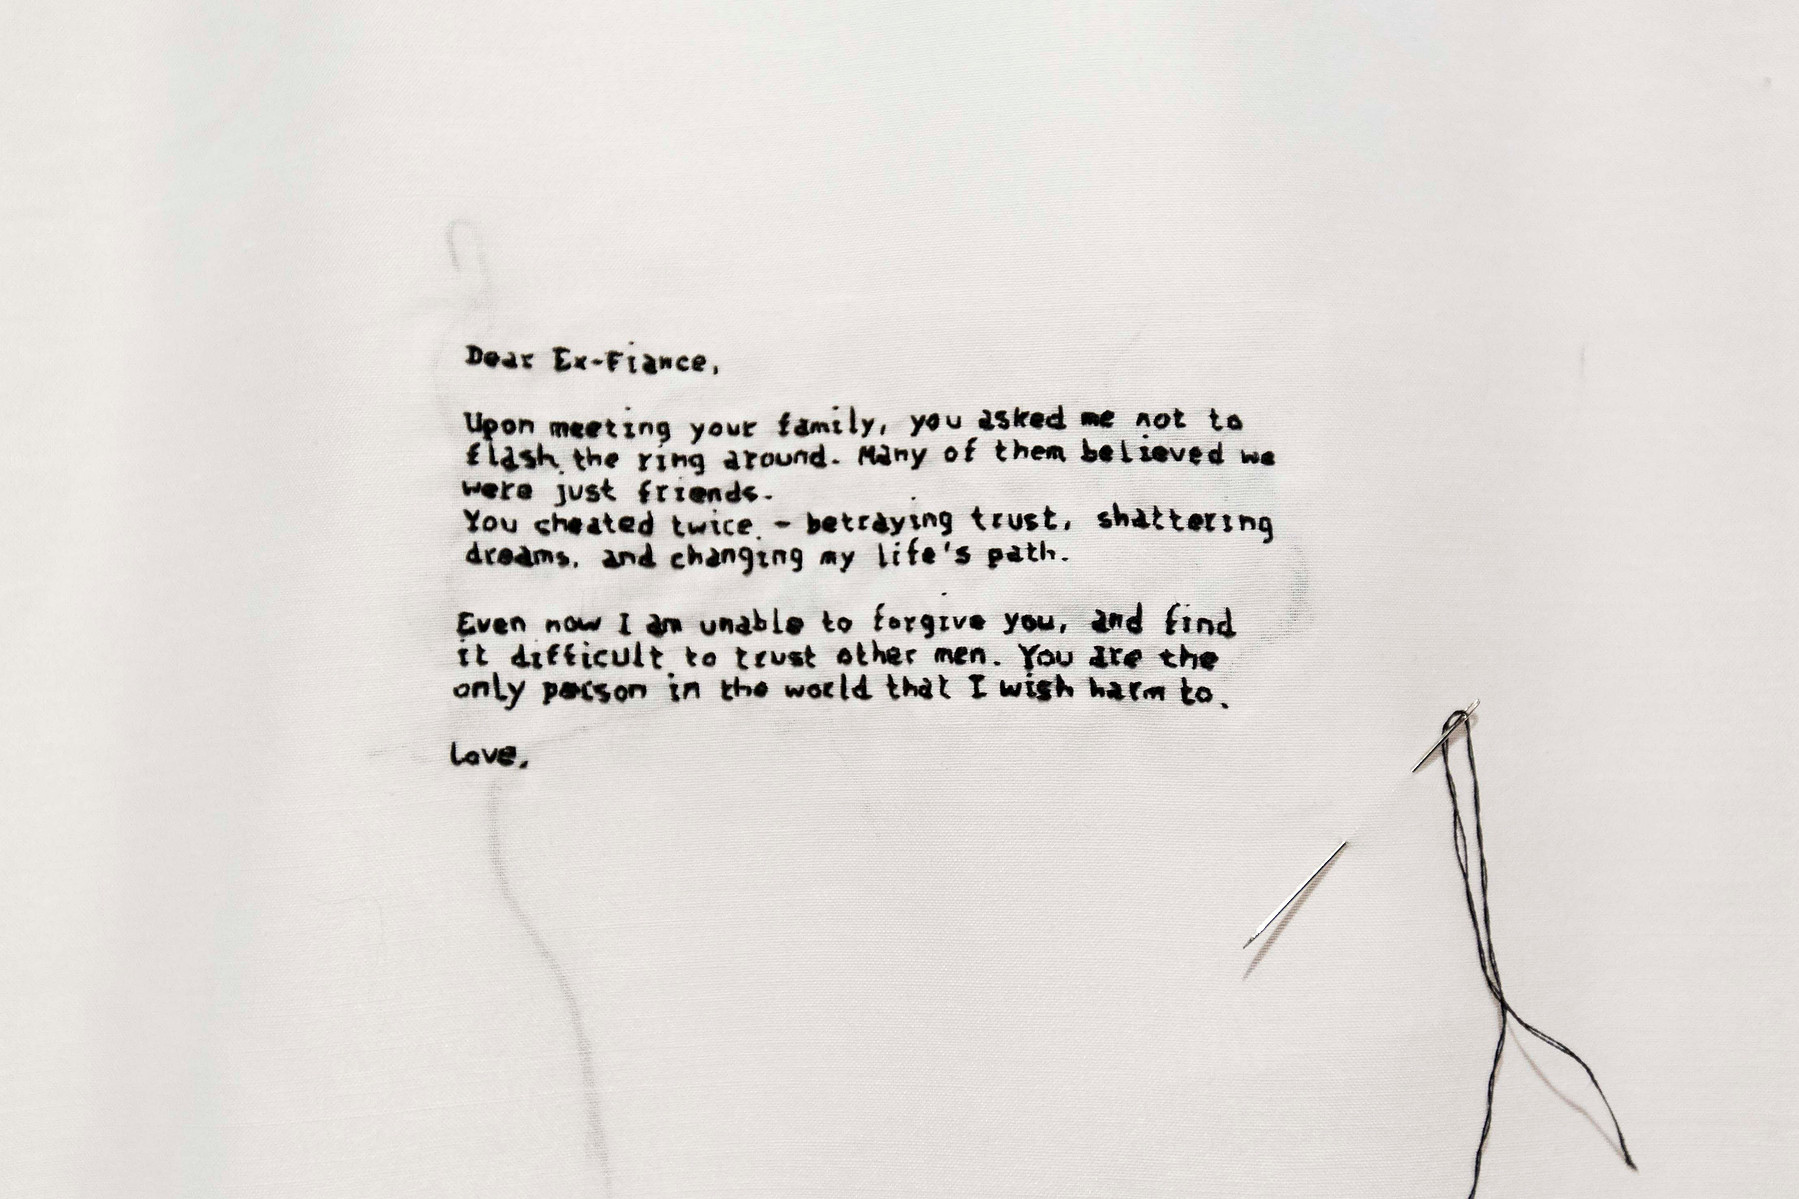 Dear Ex-Fiance,
Upon meeting your family, you asked me not to
flash the ring around. Many of them believed we
were just friends.
You cheated twice - betraying trust, shattering
dreams, and changing my life's path.
Even now I am unable to forgive you, and find
it difficult to trust other men. You are the
only person in the world that I wish harm to.
Love,